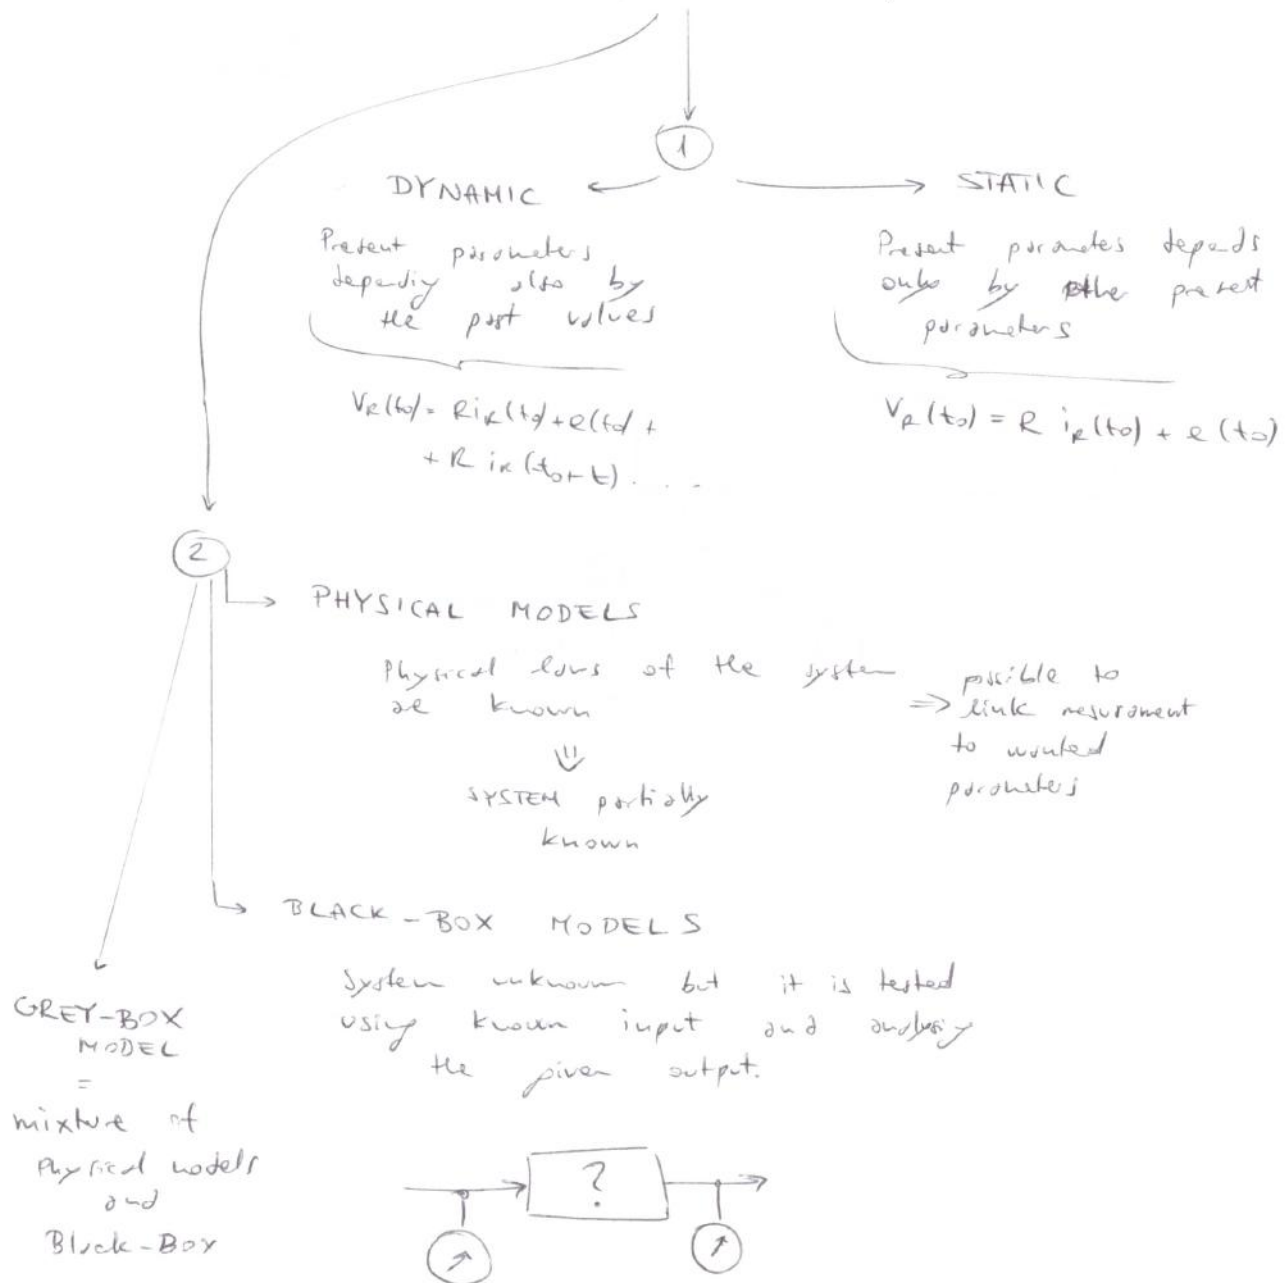 1
DYNAMIC
Present parameters
depending also by
the past values
V_R(t_0) = R i_R(t_0) + e(t_0) +
+ R i_R(t_0-t) . . . .
STATIC
Present parametes depends
only by other present
parameters
V_R(t_0) = R i_R(t_0) + e(t_0)
2
PHYSICAL MODELS
Physical laws of the system
are known
⇓
SYSTEM partially
known
⇒ possible to
link mesurament
to wanted
parameters
BLACK-BOX MODELS
System unknown but it is tested
using known input and analysing
the given output.
GREY-BOX
MODEL
=
mixture of
Physical models
and
Black-Box
?